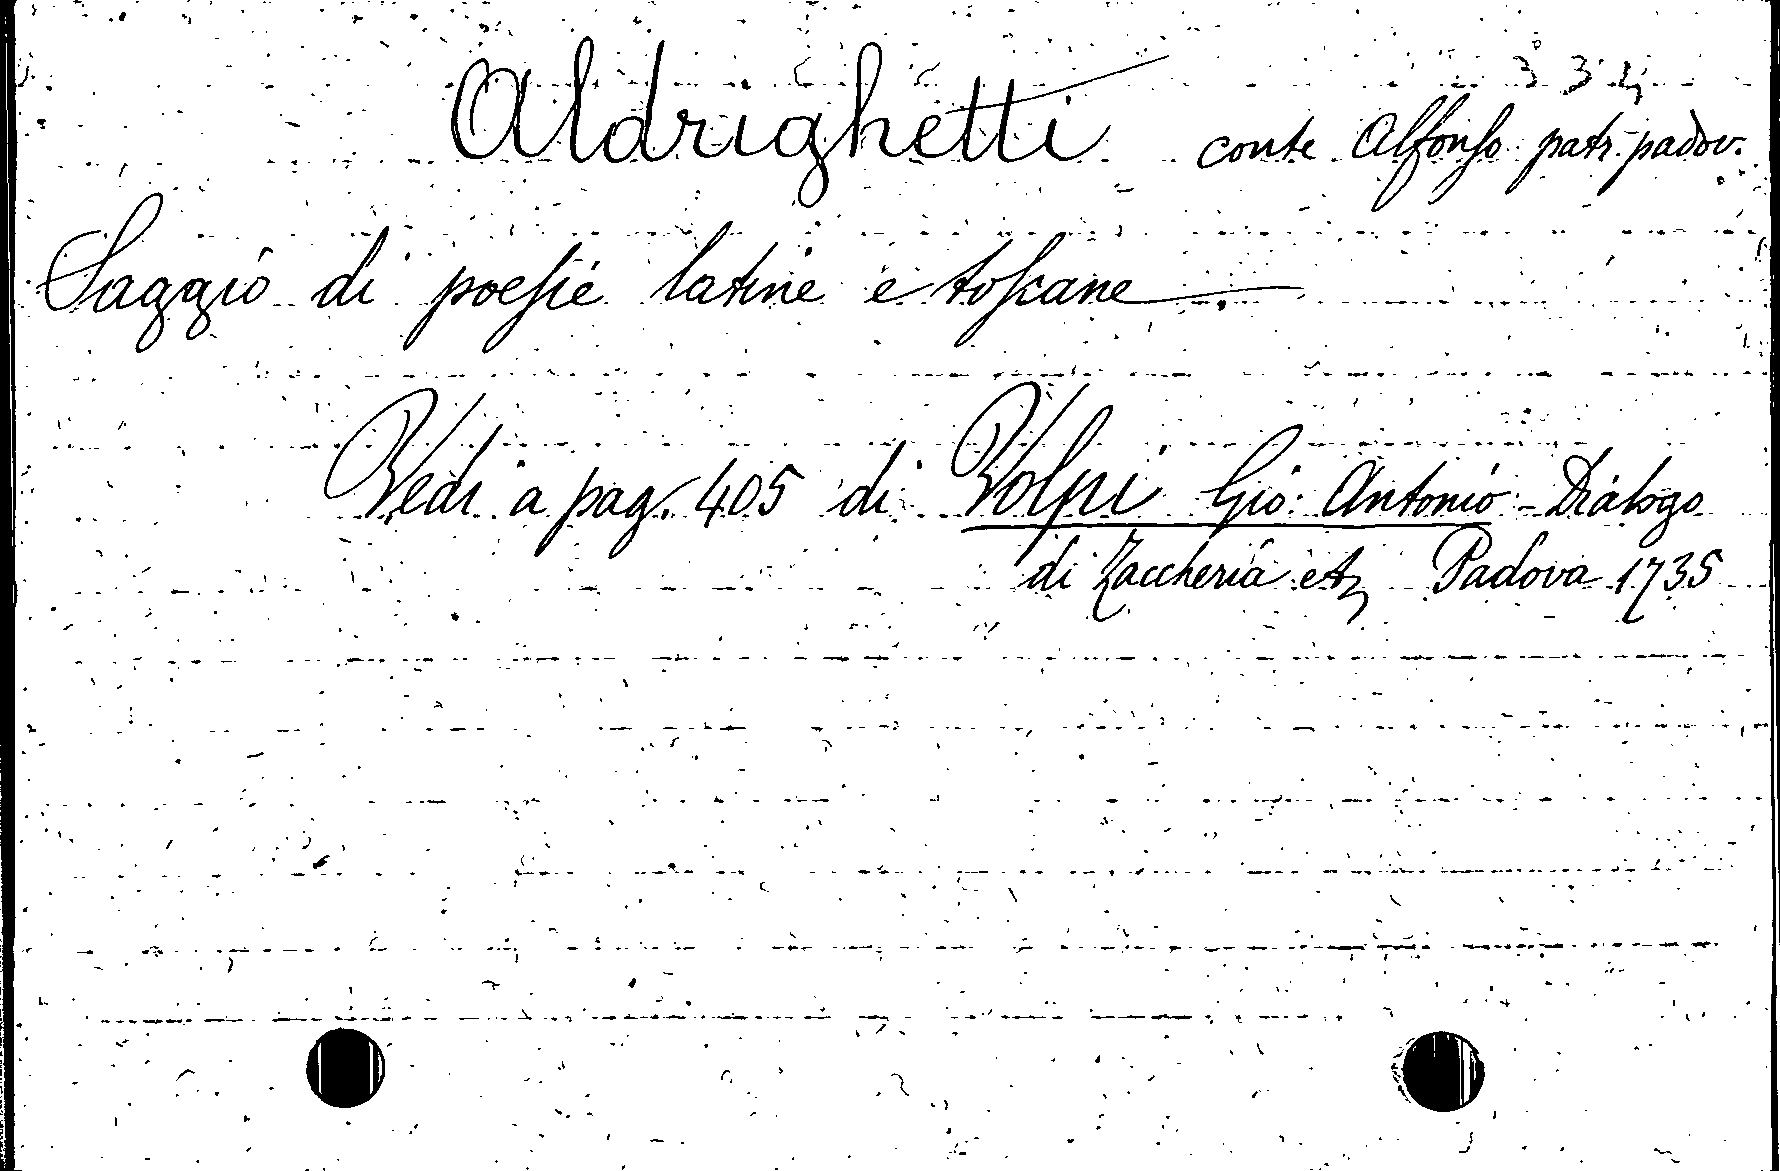 334
Aldrighetti conte Alfonso patr. padov.
Saggio di poesie latine e toscane.
Vedi a pag. 405 di Volpi Gio: Antonio - Dialogo
di Zaccheria etz Padova 1735